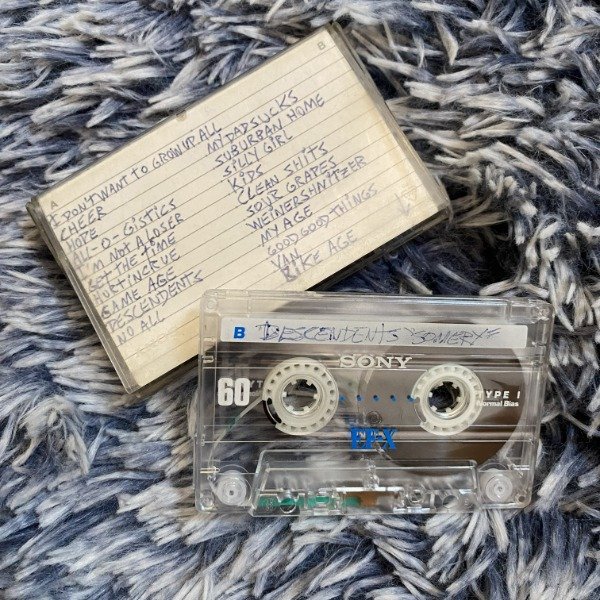 A
I DON'T WANT TO GROW UP ALL
CHEER
HOPE
ALL-O-GISTICS
I'M NOT A LOSER
GET THE TIME
HURTINCRUE
CAME AGE
DESCENDENTS
NO ALL
B
MY DAD SUCKS
SUBURBAN HOME
SILLY GIRL
KIDS
CLEAN SHITS
SOUR GRAPES
WEINERSHNITZER
MY AGE
GOOD GOOD THINGS
VAN
BIKE AGE
B DESCENDENTS "SOMERY"
SONY
60
TYPE I
Normal Bias
EF-X